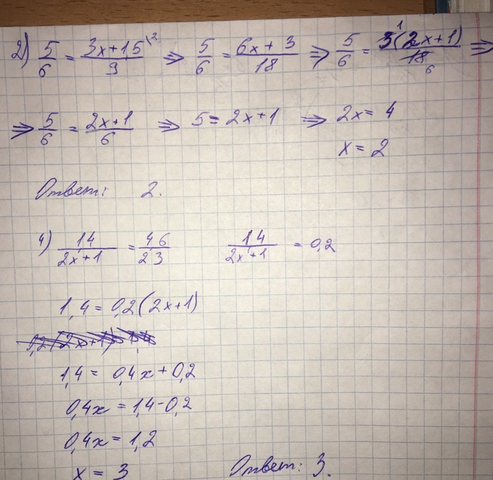 2) 5/6 = (3x+1,5)/9 \2 ⇒ 5/6 = (6x+3)/18 ⇒ 5/6 = 3(2x+1)/18 ⇒
⇒ 5/6 = (2x+1)/6 ⇒ 5=2x+1 ⇒ 2x= 4
x=2
Ответ: 2.
4) 14/(2x+1) = 46/23 1,4/(2x+1) = 0,2
1,4=0,2(2x+1)
1,4= 0,4x+0,2
0,4x=1,4-0,2
0,4x=1,2
x = 3 Ответ: 3.